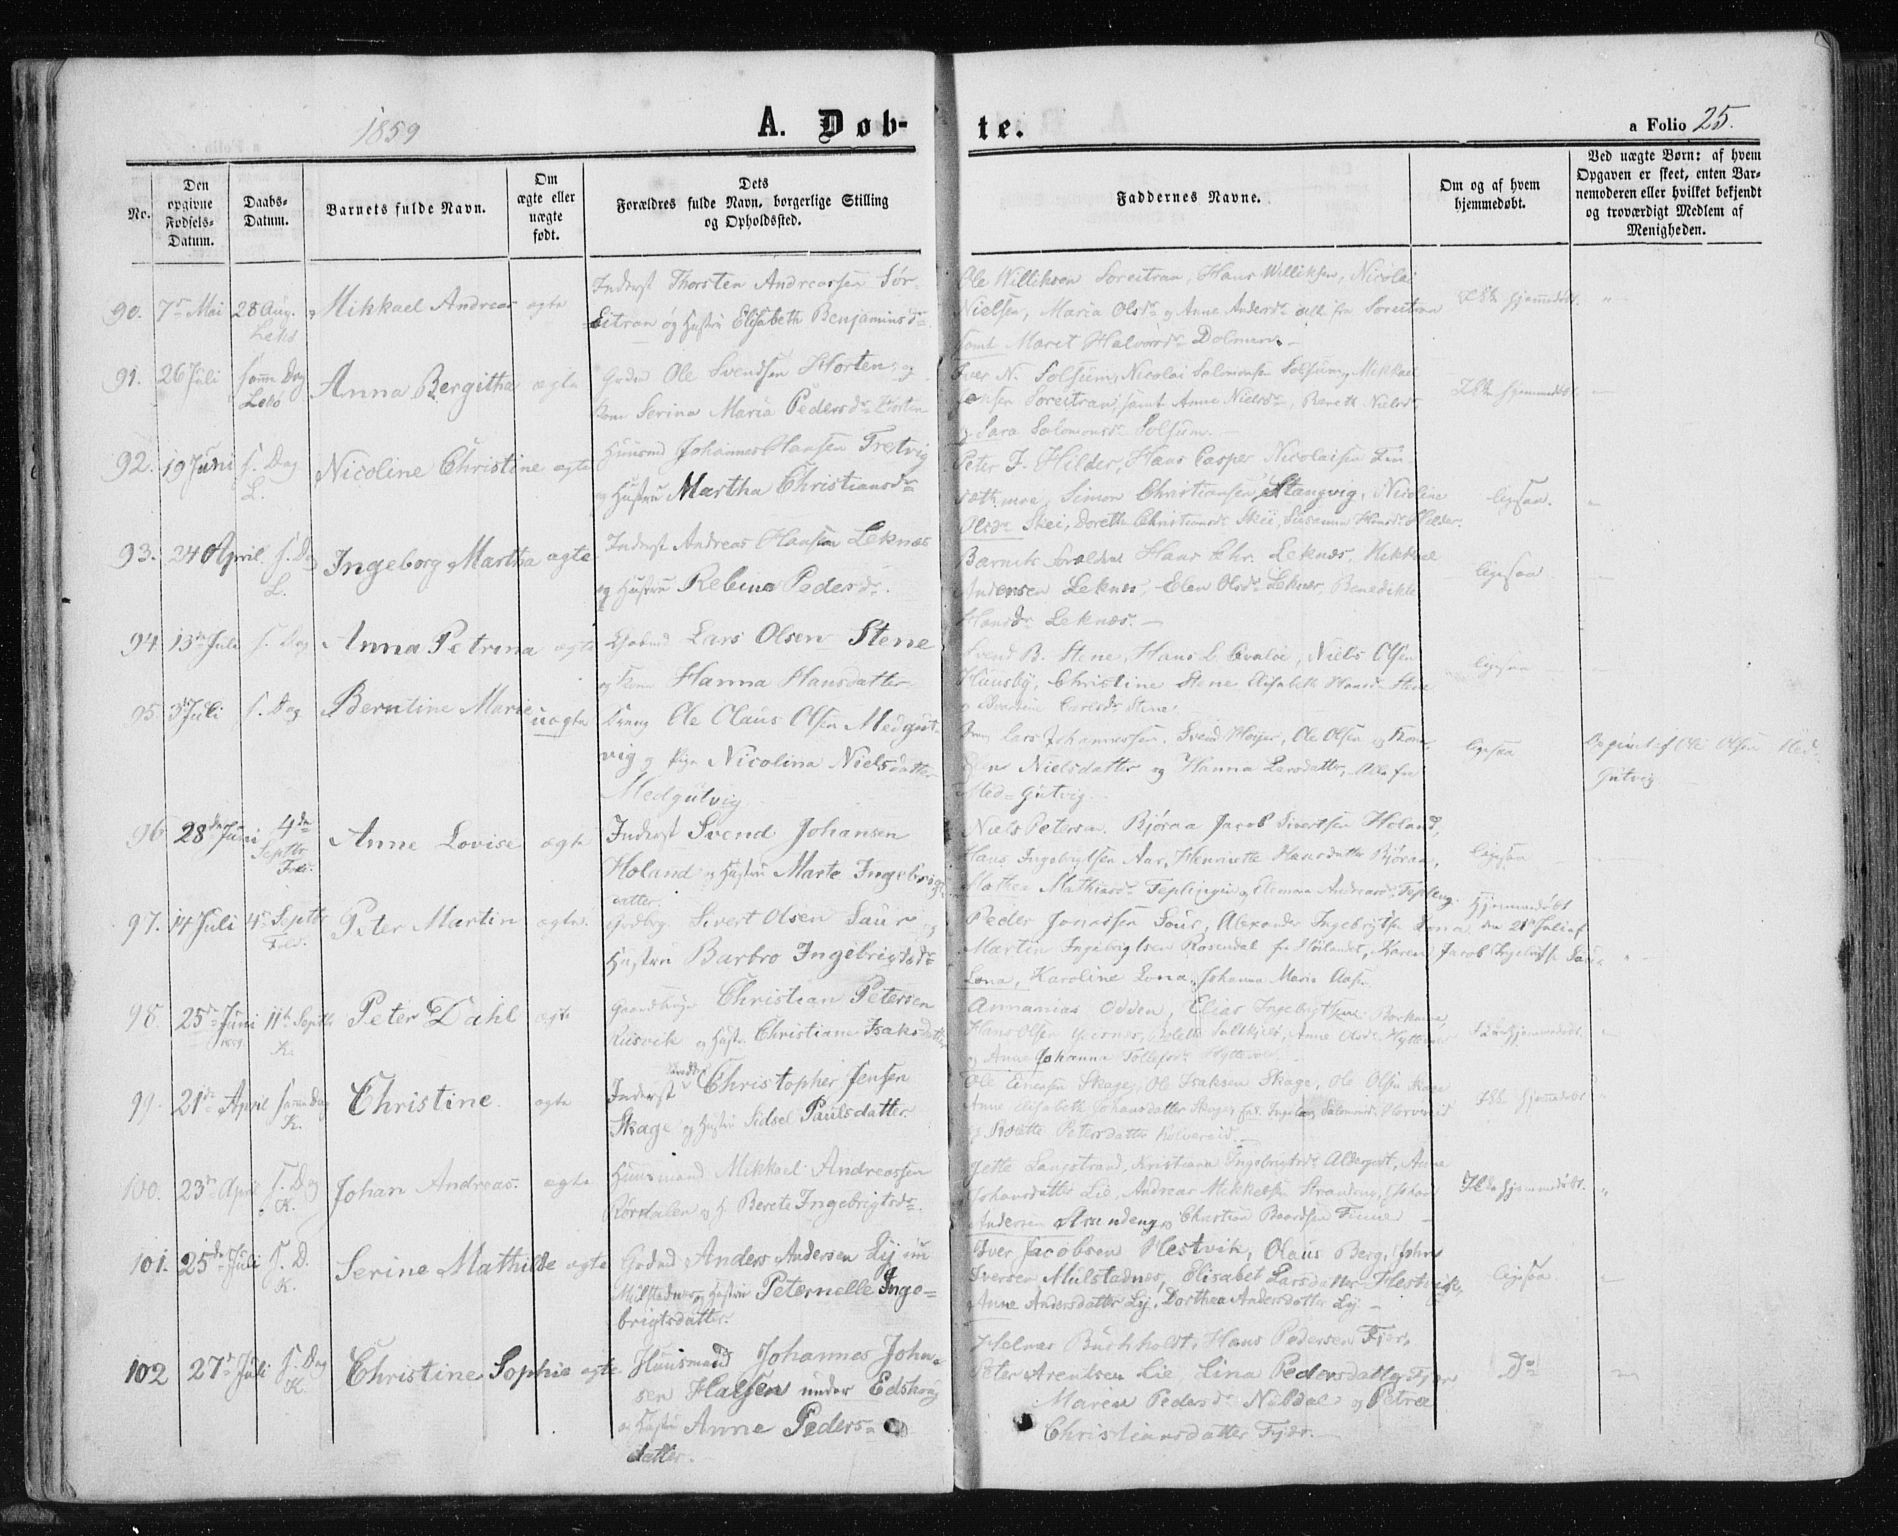 1859
A. Døb-
te.
a Folio 25.
No.
Den
opgivne
Fødsels-
Datum.
Daabs-
Datum.
Barnets fulde Navn.
Om
ægte eller
uægte
født.
Dets
Forældres fulde Navn, borgerlige Stilling
og Opholdssted.
Faddernes Navne.
Om og af hvem
hjemmedøbt.
Ved uægte Børn: af hvem
Opgaven er skeet, enten Bar-
nemoderen eller hvilket bekjendt
og troværdigt Medlem af
Menigheden.
90. 7de Mai 28 Aug. Mikkael Andreas ægte
Lekø
Inderst Thorsten Andreassen Sør-
Eitran og Hustru Elisabeth Benjaminsdr
Ole Williksen Soreitran, Hans Williksen, Nicolai
Nielsen, Maria Olsdr og Anne Andersdr alle fra Soreitran
samt Maret Halvorsdr Dolmen.
Ikke hjemmedøbt.
91. 26 Juli samme Dag Anna Bergitha ægte
Lekø
Ole Svendsen Horten og
Kone Serina Maria Pedersdr Horten
Iver N. Solsum, Nicolai Salomonsen Solsum, Mikkael
Jensen Soreitran, samt Anne Nielsdr, Berett Nielsdr
og Sara Salomonsdr Solsum.
Ikke hjemmedøbt.
92. 19 Juni s. Dag Nicoline Christine ægte
L.
Huusmd Johannes Hansen Tretvig
og Hustru Martha Christiansdr
Peter J. Hilder, Hans Casper Nicolaisen
Simon Christiansen Stangvig, Nicoline
Olsdr Skei, Dorette Christiansdr Skei, Susanna Hansdr Hilder.
ligesaa.
93. 24 April s. Dag Ingeborg Martha ægte
L.
Inderst Andreas Hansen Leknæs
og Hustru Rebina Pedersdr.
Barnets Forældre Hans Chr. Leknæs, Mikkael
Andersen Leknæs, Elen Olsdr Leknæs, Benedikte
Hansdr Leknæs.
ligesaa
94 13de Juli s. Dag Anna Petrina ægte
Lars Olsen Stene
og Kone Hanna Hansdatter
Svend B. Stene, Hans L. Qvaløe, Niels Olsen
Huusby, Christine Stene Elisabeth Hansdr Stene
Carlsdr Stene.
ligesaa
95. 3de Juli s. Dag Berntine Marie uægte
Ole Claus Olsen Medgut-
vig og Pige Nicolina Nielsdatter
Medgutvig
Lars Johannessen, Svend Høyer, Ole Olsen og Kone
Nielsdatter og Hanna Larsdatter, Alle fra
Med-Gutvig
ligesaa
Opgivet af Ole Olsen Med-
Gutvig
96 28de Juni 4de Anne Lovise ægte
Septbr
Inderst Svend Johansen
Holand og Hustru Marte Ingebrigts-
datter.
Niels Petersen Bjøraa Jacob Sivertsen Holand,
Hans Ingebrigtsen Aar, Henriette Hansdatter Bjøraa,
Mathiasdr og Andreasdr Teplingen
ligesaa
97. 14 Juli 4de Septbr Peter Martin ægte
Gaardbrg. Sivert Olsen Saur og
Hustru Barbro Ingebrigtsdr
Peder Jonassen Saur, Alexander Ingebrigtsen Lona,
Martin Ingebrigtsen Rosendal fra Horlandet, Karen
Lona, Karoline Lona, Johanna Maria
Hjemmedøbt
den 21de Juli af
Jacob Ingebrigtsen Saur
98. 25de Juni 11te Septbr Peter Dahl ægte
1859 K.
Gaardbruger Christian Petersen
Risvik og Hustr Christiane Isaksdatter
Annanias Odden, Elias Ingebrigtsen
Hans Olsen Anne Olsdr
og Anne Johanna Tollefsdr
Ikke hjemmedøbt.
99. 21de April samme Dag Christine ægte
K.
Inderst Christopher Jensen
Skage og Hustru Sidsel Paulsdatter
Ole Einersen Skage, Ole Isaksen Skage, Ole Olsen Skage
Anne Elisabeth Johansdatter Skage
Petersdatter Kolvereid
Ikke hjemmedøbt
100. 23de April s. Dag Johan Andreas. ægte
K.
Huusmand Mikkael Andreassen
Rørdalen og H. Berete Ingebrigtsdr.
Jette Langstrand, Kristiana Ingebrigtsdr Aldergut, Anne
Johansdatter Lie, Andreas Mikkelsen Strandeng, Johan
Andersen Strandeng og Christian Baardsen Finne
Ikke hjemmedøbt.
101. 25de Juli s. D. Serine Mathilde ægte
K.
Grdmd Anders Andersen Ly
og Hustru Peternelle Inge-
brigtsdatter.
Iver Jacobsen Hestvik, Olaus Berg, John
Iversen Mulstadnes, Elisabet Larsdatter Hestvik,
Anne Andersdatter Ly, Dorthea Andersdatter Ly
ligesaa
102 27de Juli s. Dag Christine Sophie ægte
K.
Huusmand Johannes John-
sen Halsen under Edshoug
og Hustru Anne Peders-
datter.
Helmer Buchholdt, Hans Pedersen Fjær,
Peter Arentsen Lie, Lina Pedersdatter Fjær
Maren Pedersdr Nubdal og Petrea
Christiansdatter Fjær.
Do